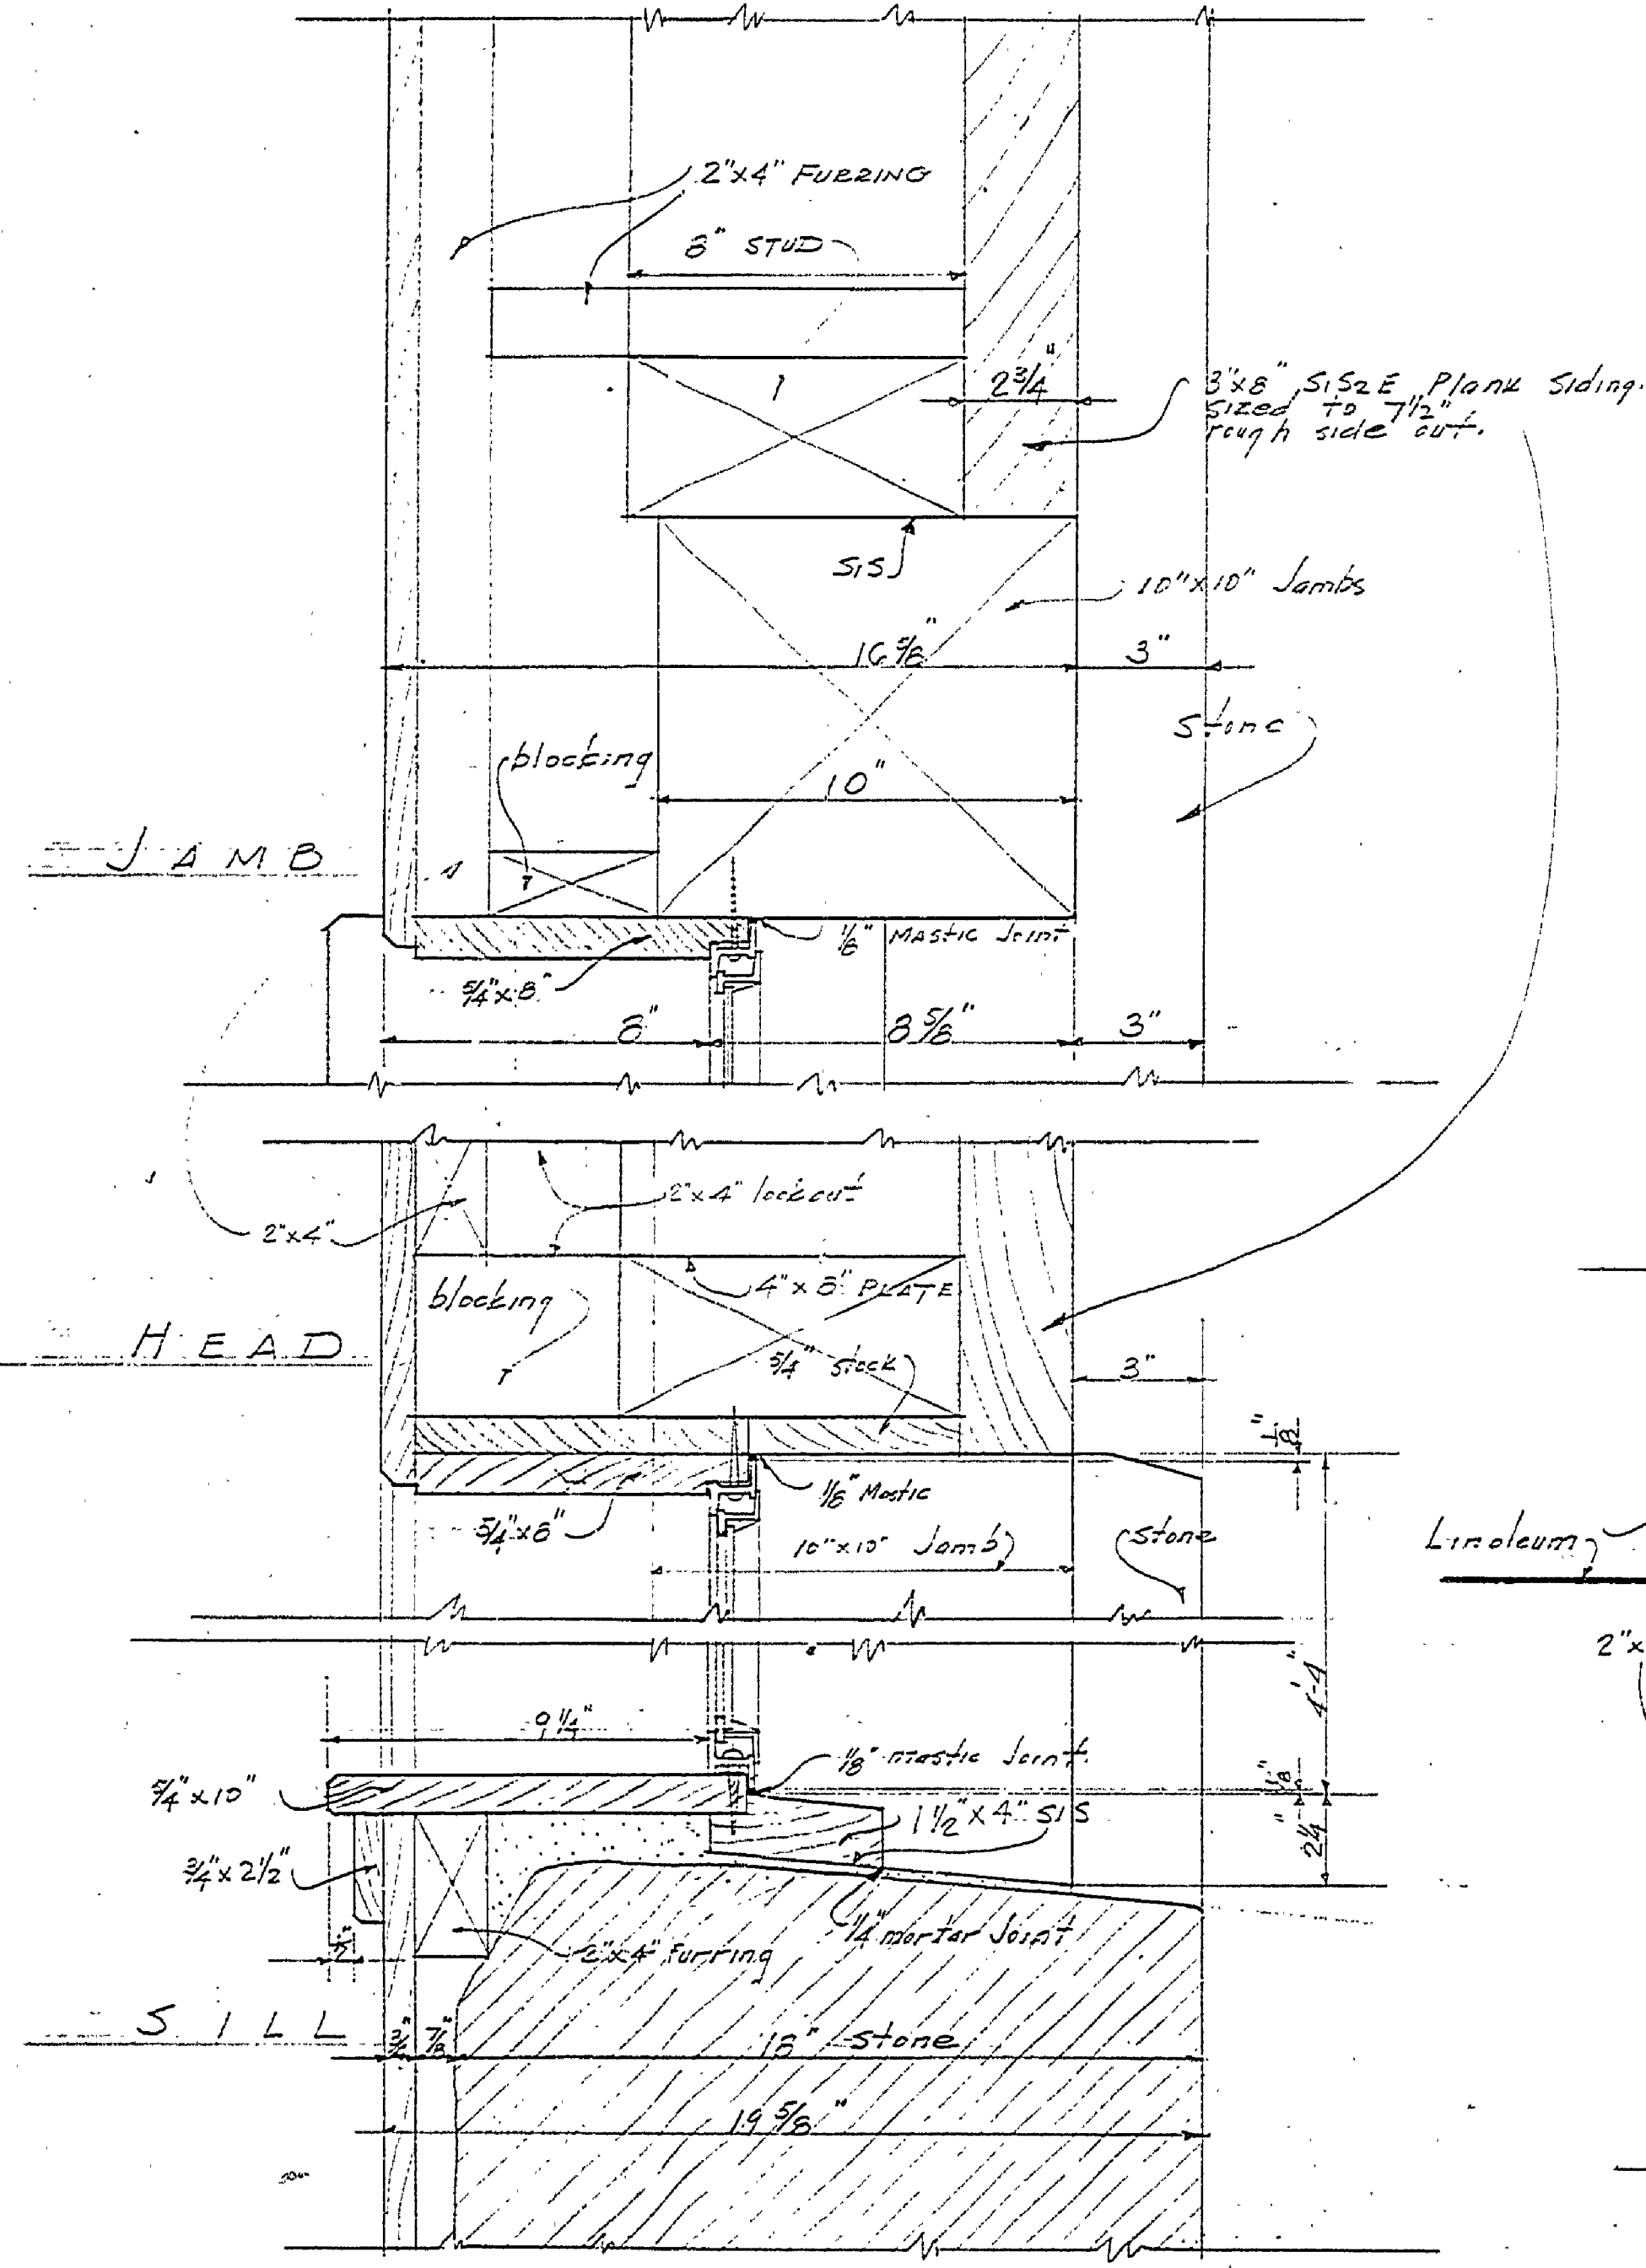 2"x4" FURRING
8" STUD
2 3/4"
3"x8" S1S2E Plank Siding.
sized to 7 1/2"
rough side out.
S1S
10"x10" Jambs
16 5/8"
3"
Stone
blocking
10"
JAMB
1/8" MASTIC Joint
5/4"x8"
8"
8 5/8"
3"
2"x4" lookout
2"x4"
4"x8" PLATE
blocking
HEAD
5/4" stock
3"
1/8"
1/8" Mastic
5/4"x8"
10"x10" Jamb
Stone
Linoleum
2"x
4'-4"
9 1/4"
1/8" mastic Joint.
1/8"
5/4"x10"
1 1/2"x4" S1S
2 1/4"
3/4"x2 1/2"
1/4" mortar Joint
1/2"
2"x4" furring
SILL
3/4"
7/8"
18" stone
19 5/8"